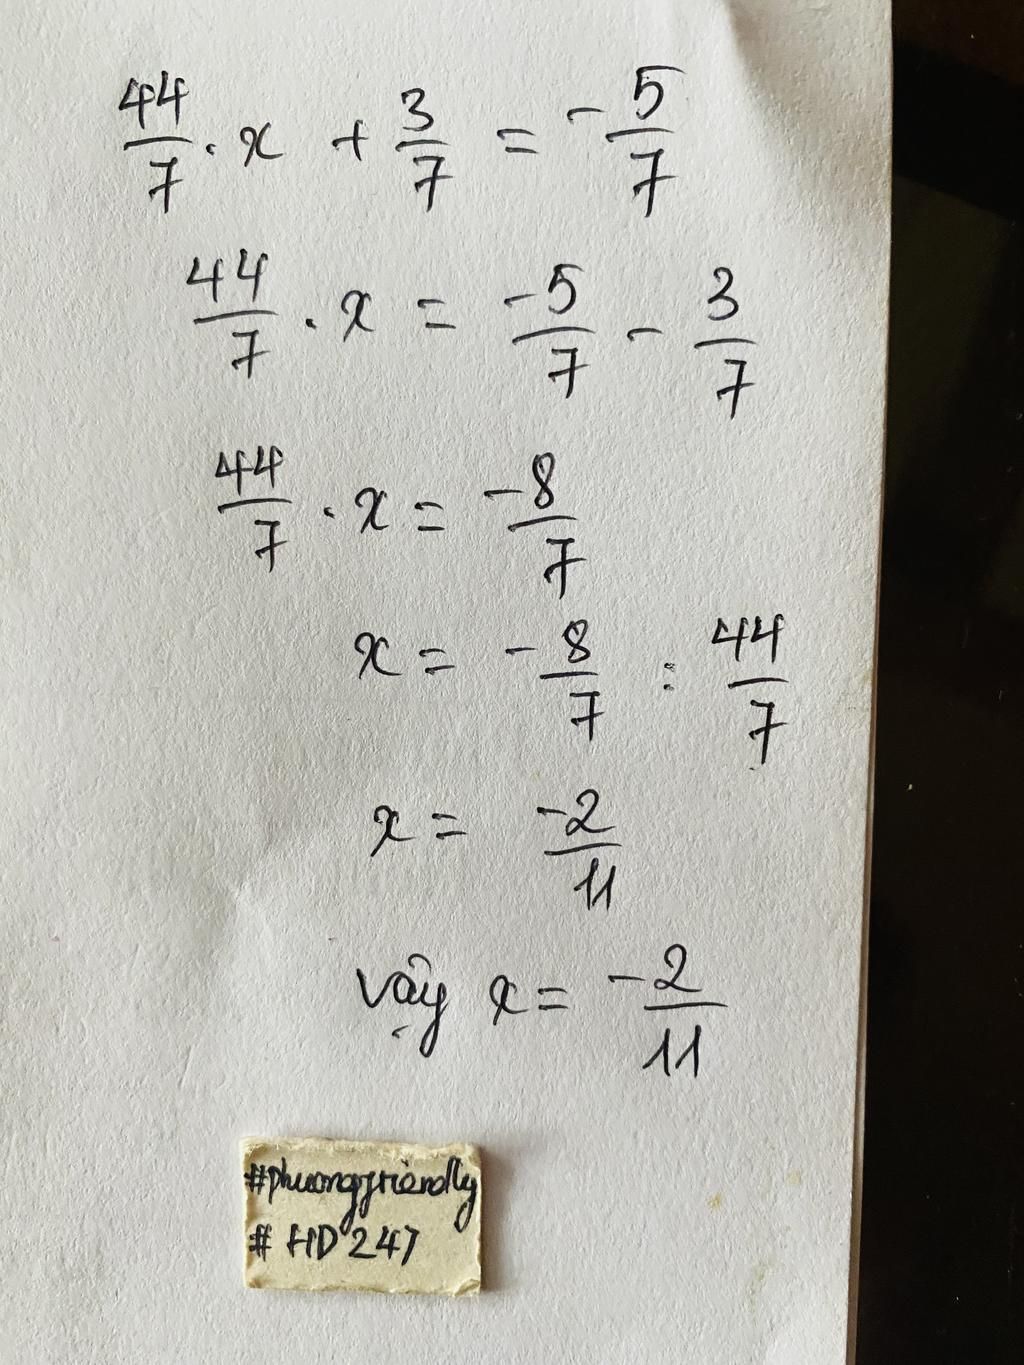 44/7 . x + 3/7 = - 5/7
44/7 . x = -5/7 - 3/7
44/7 . x = -8/7
x = - 8/7 : 44/7
x = -2/11
vậy x = -2/11
#phuongfriendly
# HD 247